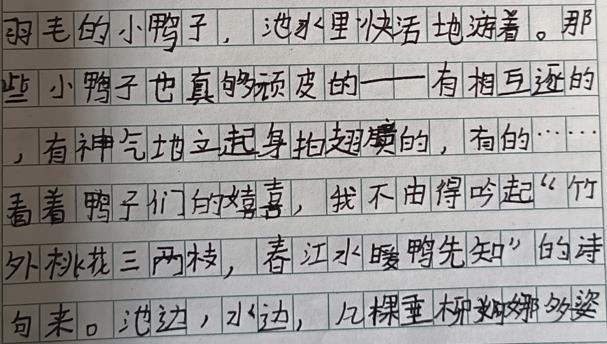 羽毛的小鸭子，池水里快活地游着。那
些小鸭子也真够顽皮的——有相互逐的
，有神气地立起身拍翅膀的，有的……
看着鸭子们的嬉喜，我不由得吟起“竹
外桃花三两枝，春江水暖鸭先知”的诗
句来。池边，水边，几棵垂柳婀娜多姿